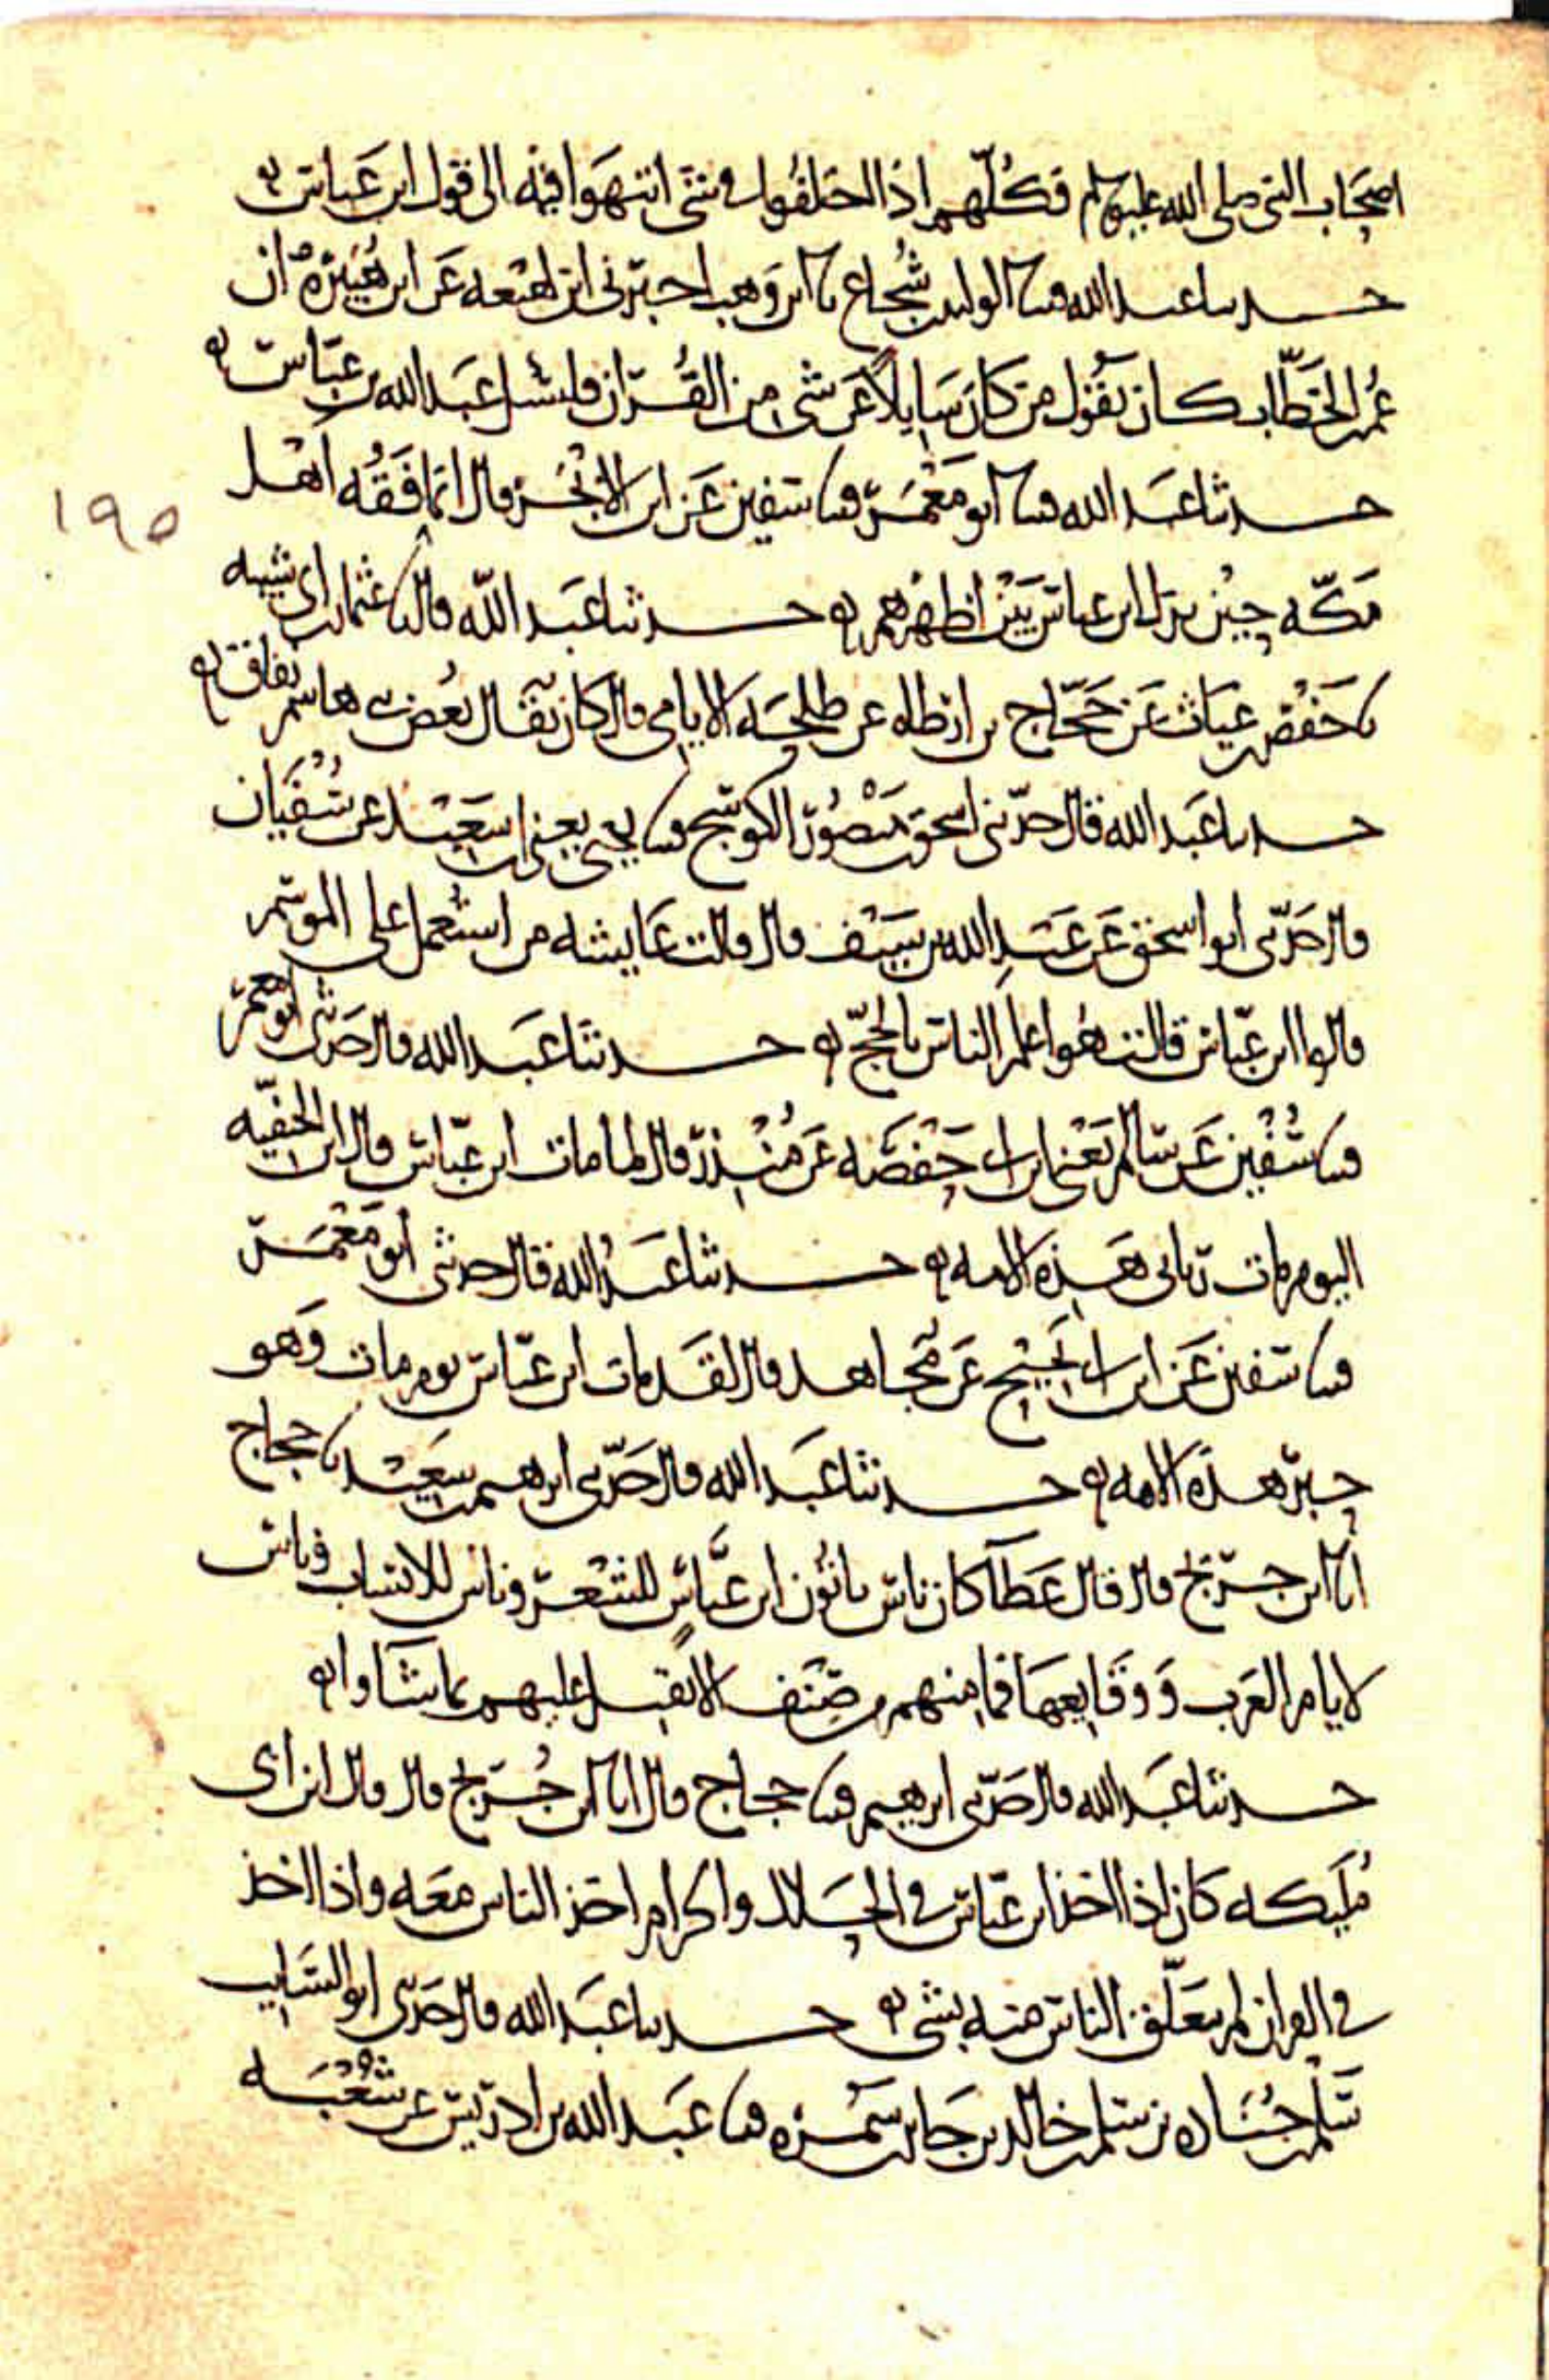 اصحاب النبي صلى الله عليه وسلم فكلهم اذا اختلفوا في شى انتهوا فيه الى قول ابن عباس
حدثنا عبد الله قثنا الوليد بن شجاع نا ابن وهب اخبرني ابن لهيعه عن ابن هبيرة ان
عمر بن الخطاب كان يقول من كان سايلا عن شى من القران فليسل عبد الله بن عباس
حدثنا عبد الله قثنا ابو معمر قثنا سفين عن ابن ابجر قال انما فقه اهل
مكه حين نزل ابن عباس بين اظهرهم حدثنا عبد الله قال نا عثمان بن ابي شيبه
نا حفص بن غياث عن حجاج بن ارطاه عن طلحه الايامي قال كان يقال بغض بني هاشم نفاق
حدثنا عبد الله قال حدثني اسحق بن منصور الكوسج قثنا يحيى يعني ابن سعيد عن سفيان
قال حدثني ابو اسحق عن عبد الله بن سيف قال قالت عايشه من استعمل على الموسم
قالوا ابن عباس قالت هو اعلم الناس بالحج حدثنا عبد الله قال حدثني ابو معمر
قثنا سفين عن سالم يعني ابن ابي حفصه عن منذر قال لما مات ابن عباس قال ابن الحنفيه
اليوم مات رباني هذه الامه حدثنا عبد الله قال حدثني ابو معمر
قثنا سفين عن ابن ابي نجيح عن مجاهد قال لقد مات ابن عباس يوم مات وهو
حبر هذه الامه حدثنا عبد الله قال حدثني ابرهيم بن سعيد نا حجاج
انا ابن جريج قال قال عطا كان ناس ياتون ابن عباس للشعر وناس للانساب وناس
لايام العرب ووقايعها فما منهم من صنف الا يقبل عليهم بما شاوا
حدثنا عبد الله قال حدثني ابرهيم قثنا حجاج قال انا ابن جريج قال قال ابن ابي
مليكه كان اذا اخذ ابن عباس في الحلال والحرام اخذ الناس معه واذا اخذ
في القران لم يتعلق الناس منه بشى حدثنا عبد الله قال حدثني ابو السايب
سلم بن جناده بن سلم بن خالد بن جابر بن سمره قثنا عبد الله بن ادريس عن شعبه
١٩٥